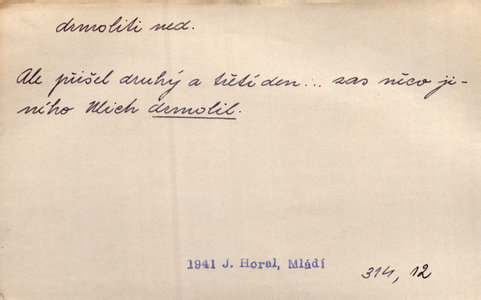 drmoliti ned.
Ale přišel druhý a třetí den... zas něco ji-
ného Mich drmolil.
1941 J. Horal, Mládí
314, 12